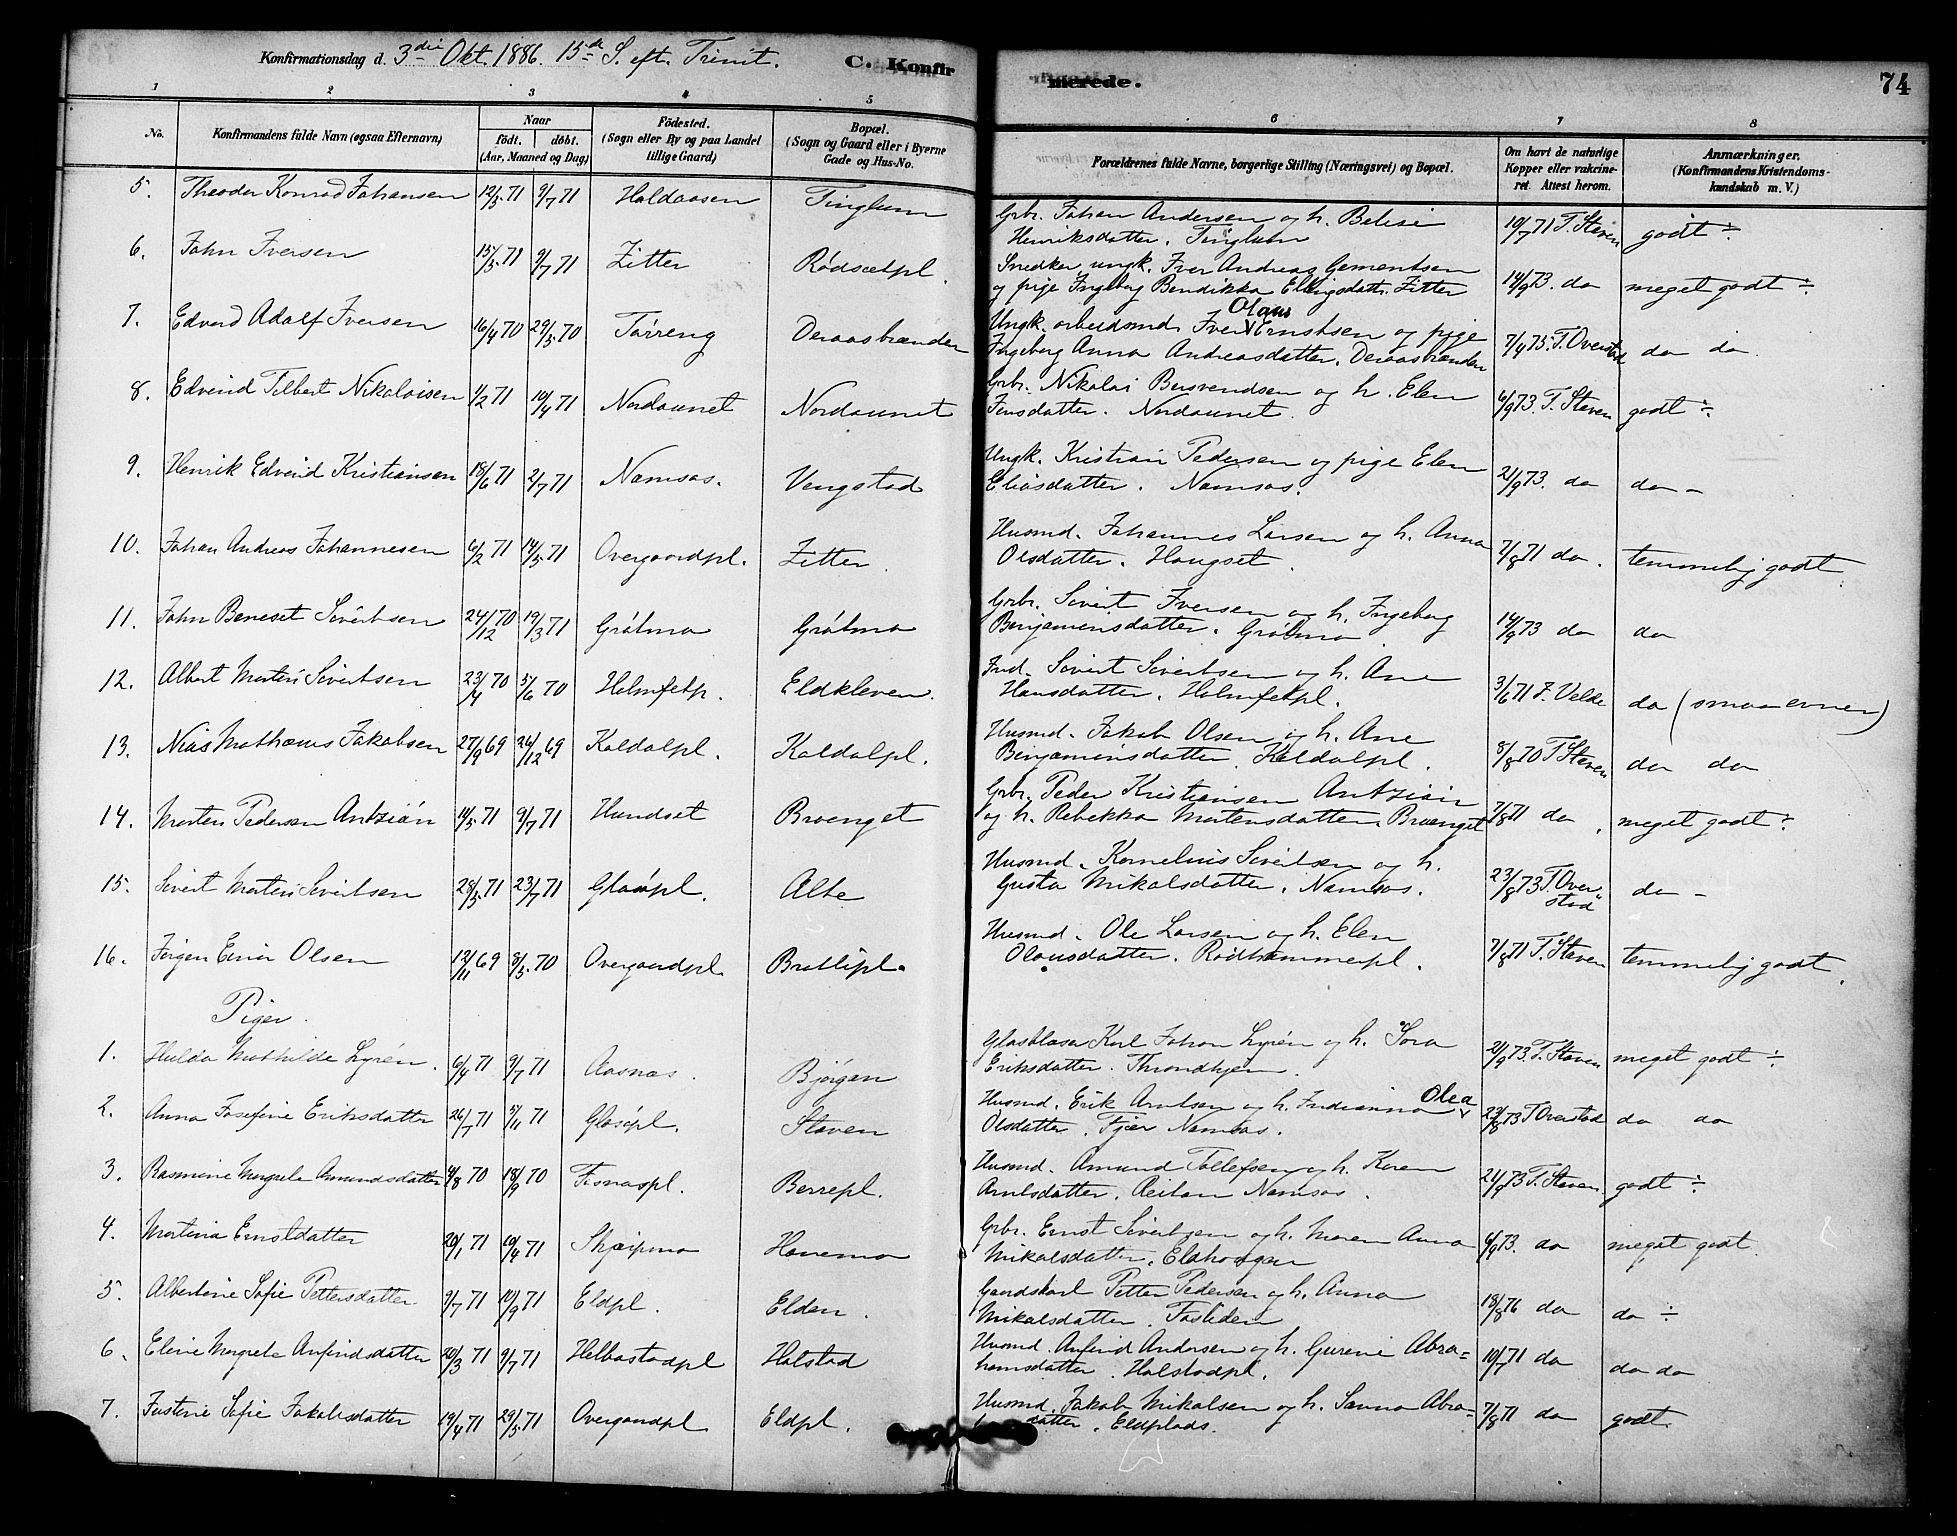 Konfirmationsdag d. 3die Okt. 1886. 15de S. eft. Trinit. C. Konfirmerede. 74
1 2 3 4 5 6 7 8
No. Konfirmandens fulde Navn (ogsaa Efternavn) Naar født. døbt. (Aar, Maaned og Dag) Fødested. (Sogn eller By og paa Landet tillige Gaard) Bopæl. (Sogn og Gaard eller i Byerne Gade og Hus-No. Forældrenes fulde Navne, borgerlige Stilling (Næringsvei) og Bopæl. Om havt de naturlige Kopper eller vakcineret. Attest herom. Anmærkninger. (Konfirmandens Kristendomskundskab m. V.)
5. Theodor Konrad Johansen 12/5.71 9/7 71 Haldaasen Tinglum Grbr. Johan Andersen og h. Henriksdatter. Tinglum 10/7 71 T. Staven godt ÷
6. John Iversen 15/5.71 9/7 71 Zitter Rødsætpl. Snedker ungk. Iver Andreas og pige Ingeborg Bendikka Ellingsdatt. Zitter 14/9 73. do meget godt ÷
7. Edvard Adolf Iversen 16/4 70 29/5.70 Tørreng Deraasbrænden Ungk. arbeidsmd. Iver Olaus Ernstsen og pige Ingeborg Anna Andreasdatter. Deraasbrænden 7/4 75. T. Overstad do do
8. Edvind Tilbert Nikolaisen 1/2 71 10/4 71 Nordaunet Nordaunet Grbr. Nikolai Bersvendsen og h. Elen Jensdatter. Nordaunet. 6/9 73. T. Staven godt ÷
9. Henrik Edvind Kristiansen 18/6 71 2/7 71 Namsos. Vengstad Ungk. Kristian Pedersen og pige Elen Eliasdatter. Namsos. 21/9 73. do do –
10. Johan Andreas Johannesen 6/2 71 14/5.71 Overgaardpl. Zitter. Husmd. Johannes Larsen og h. Anna Olsdatter. Haugset. 7/8 71 do. temmelig godt
11. John Beneset Sivertsen 24/12 70 19/3 71 Grøtmo Grøtmo Grbr. Sivert Iversen og h. Ingeborg Benjaminsdatter. Grøtmo 14/9 73 do do
12. Albert Martin Sivertsen 23/4 70 5/6 70 Holmsetp. Eldkleven. Ind. Sivert Sivertsen og h. Ane Hansdatter. Holmsetpl. 3/6 71 F. Velde do (smaa evner)
13. Nils Mathæus Jakobsen 27/9 69 26/12 69 Kaldalpl. Kaldalpl. Husmd. Jakob Olsen og h. Ane Benjaminsdatter. Kaldalpl. 8/8 70 T Staven do do
14. Morten Pedersen Antzión 14/5.71 9/7 71 Hundset Brænget Grbr. Peder Kristiansen Antzión og h. Rebekka Mortensdatter. Brænget 7/8 71 do. meget godt ÷
15. Sivert Martin Sivertsen 28/5.71 23/7 71 Glasøpl. Alte Husmd. Kornelius Sivertsen og h. Gusta Mikalsdatter. Namsos. 23/8 73 T. Overstad do –
16. Jørgen Einar Olsen 12/11 69 8/5.70 Overgaardpl. Brattlipl. Husmd. Ole Larsen og h. Elen Olausdatter. Rødhammerpl. 7/8 71 T. Staven temmelig godt.
Piger.
1. Hulda Mathilde Lyrén. 6/4 71 9/7 71 Aasnæs. Bjørgan Glasblæser Karl Johan Lyrén og h. Sara Eriksdatter. Throndhjem. 21/9 73 T. Staven meget godt ÷
2. Anna Josefine Eriksdatter 26/7 71 5/11 71 Glasøpl. Staven Husmd. Erik Arntsen og h. Indianna Olea Olsdatter. Fjær Namsos. 23/8 73 T Overstad do do
3. Rasmine Margrete Amundsdatter 4/8 70 18/9 70 Fisnæspl. Berrepl. Husmd. Amund Tollefsen og h. Karen Arntsdatter. Reitan Namsos. 21/9 73 T. Staven. godt ÷
4. Martina Ernstdatter 20/1 71 10/4 71 Skjeipmo Hanemo Grbr. Ernst Sivertsen og h. Maren Anna Mikalsdatter. Eldhaugan 6/9 73. do meget godt.
5. Albertine Sofie Pettersdatter 9/7 71 10/9 71 Eldpl. Elden. Gaardskarl Petter Pedersen og h. Anna Mikalsdatter. Fosliden 18/8 76 do do ÷
6. Eline Margrete Anfindsdatter 20/3 71 9/7 71 Helbostadpl Halstad Husmd. Anfind Andersen og h. Gurine Abrahamsdatter. Halstadpl. 10/7 71 do do do
7. Justine Sofie Jakobsdatter 19/4 71 29/5.71 Overgaardpl Eldpl. Husmd. Jakob Mikalsen og h. Sanna Abra=datter. Eldplads. 7/8 71 do godt.